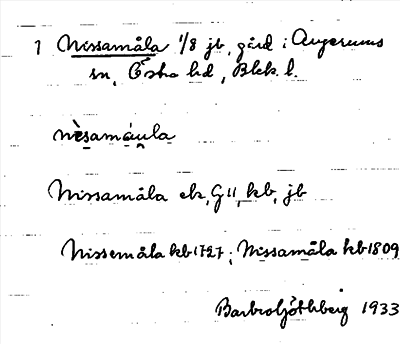 1 Nissamåla 1/8 jb, gård i Augerums
sn, Östra hd, Blek. l.
nèsamáula
Nissamåla ek, G11, kb, jb
Nissemåla kb 1727; Nissamåla kb 1809
Barbro Ljöthberg 1933